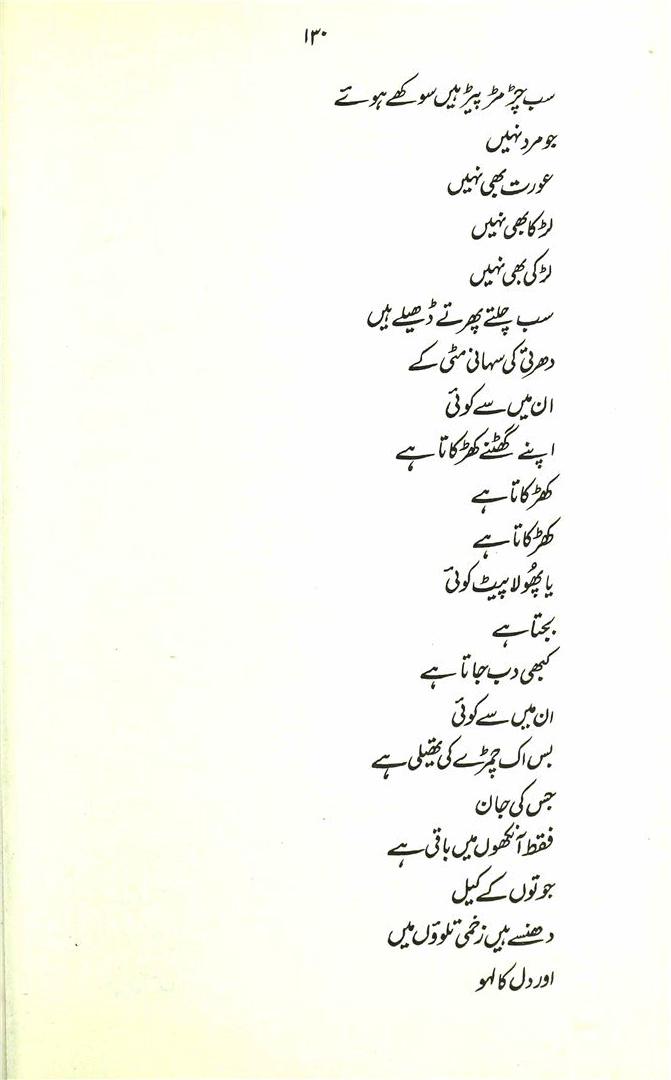 ۱۳۰
سب چڑمڑ پیڑ ہیں سوکھے ہوئے
جو مرد نہیں
عورت بھی نہیں
لڑکا بھی نہیں
لڑکی بھی نہیں
سب چلتے پھرتے ڈھیلے ہیں
دھرتی کی سہانی مٹی کے
ان میں سے کوئی
اپنے گھٹنے کھڑکاتا ہے
کھڑکاتا ہے
کھڑکاتا ہے
یا پھُولا پیٹ کوئی
بجتا ہے
کبھی دب جاتا ہے
ان میں سے کوئی
بس اک چمڑے کی تھیلی ہے
جس کی جان
فقط آنکھوں میں باقی ہے
جوتوں کے کیل
دھنسے ہیں زخمی تلوؤں میں
اور دل کا لہو